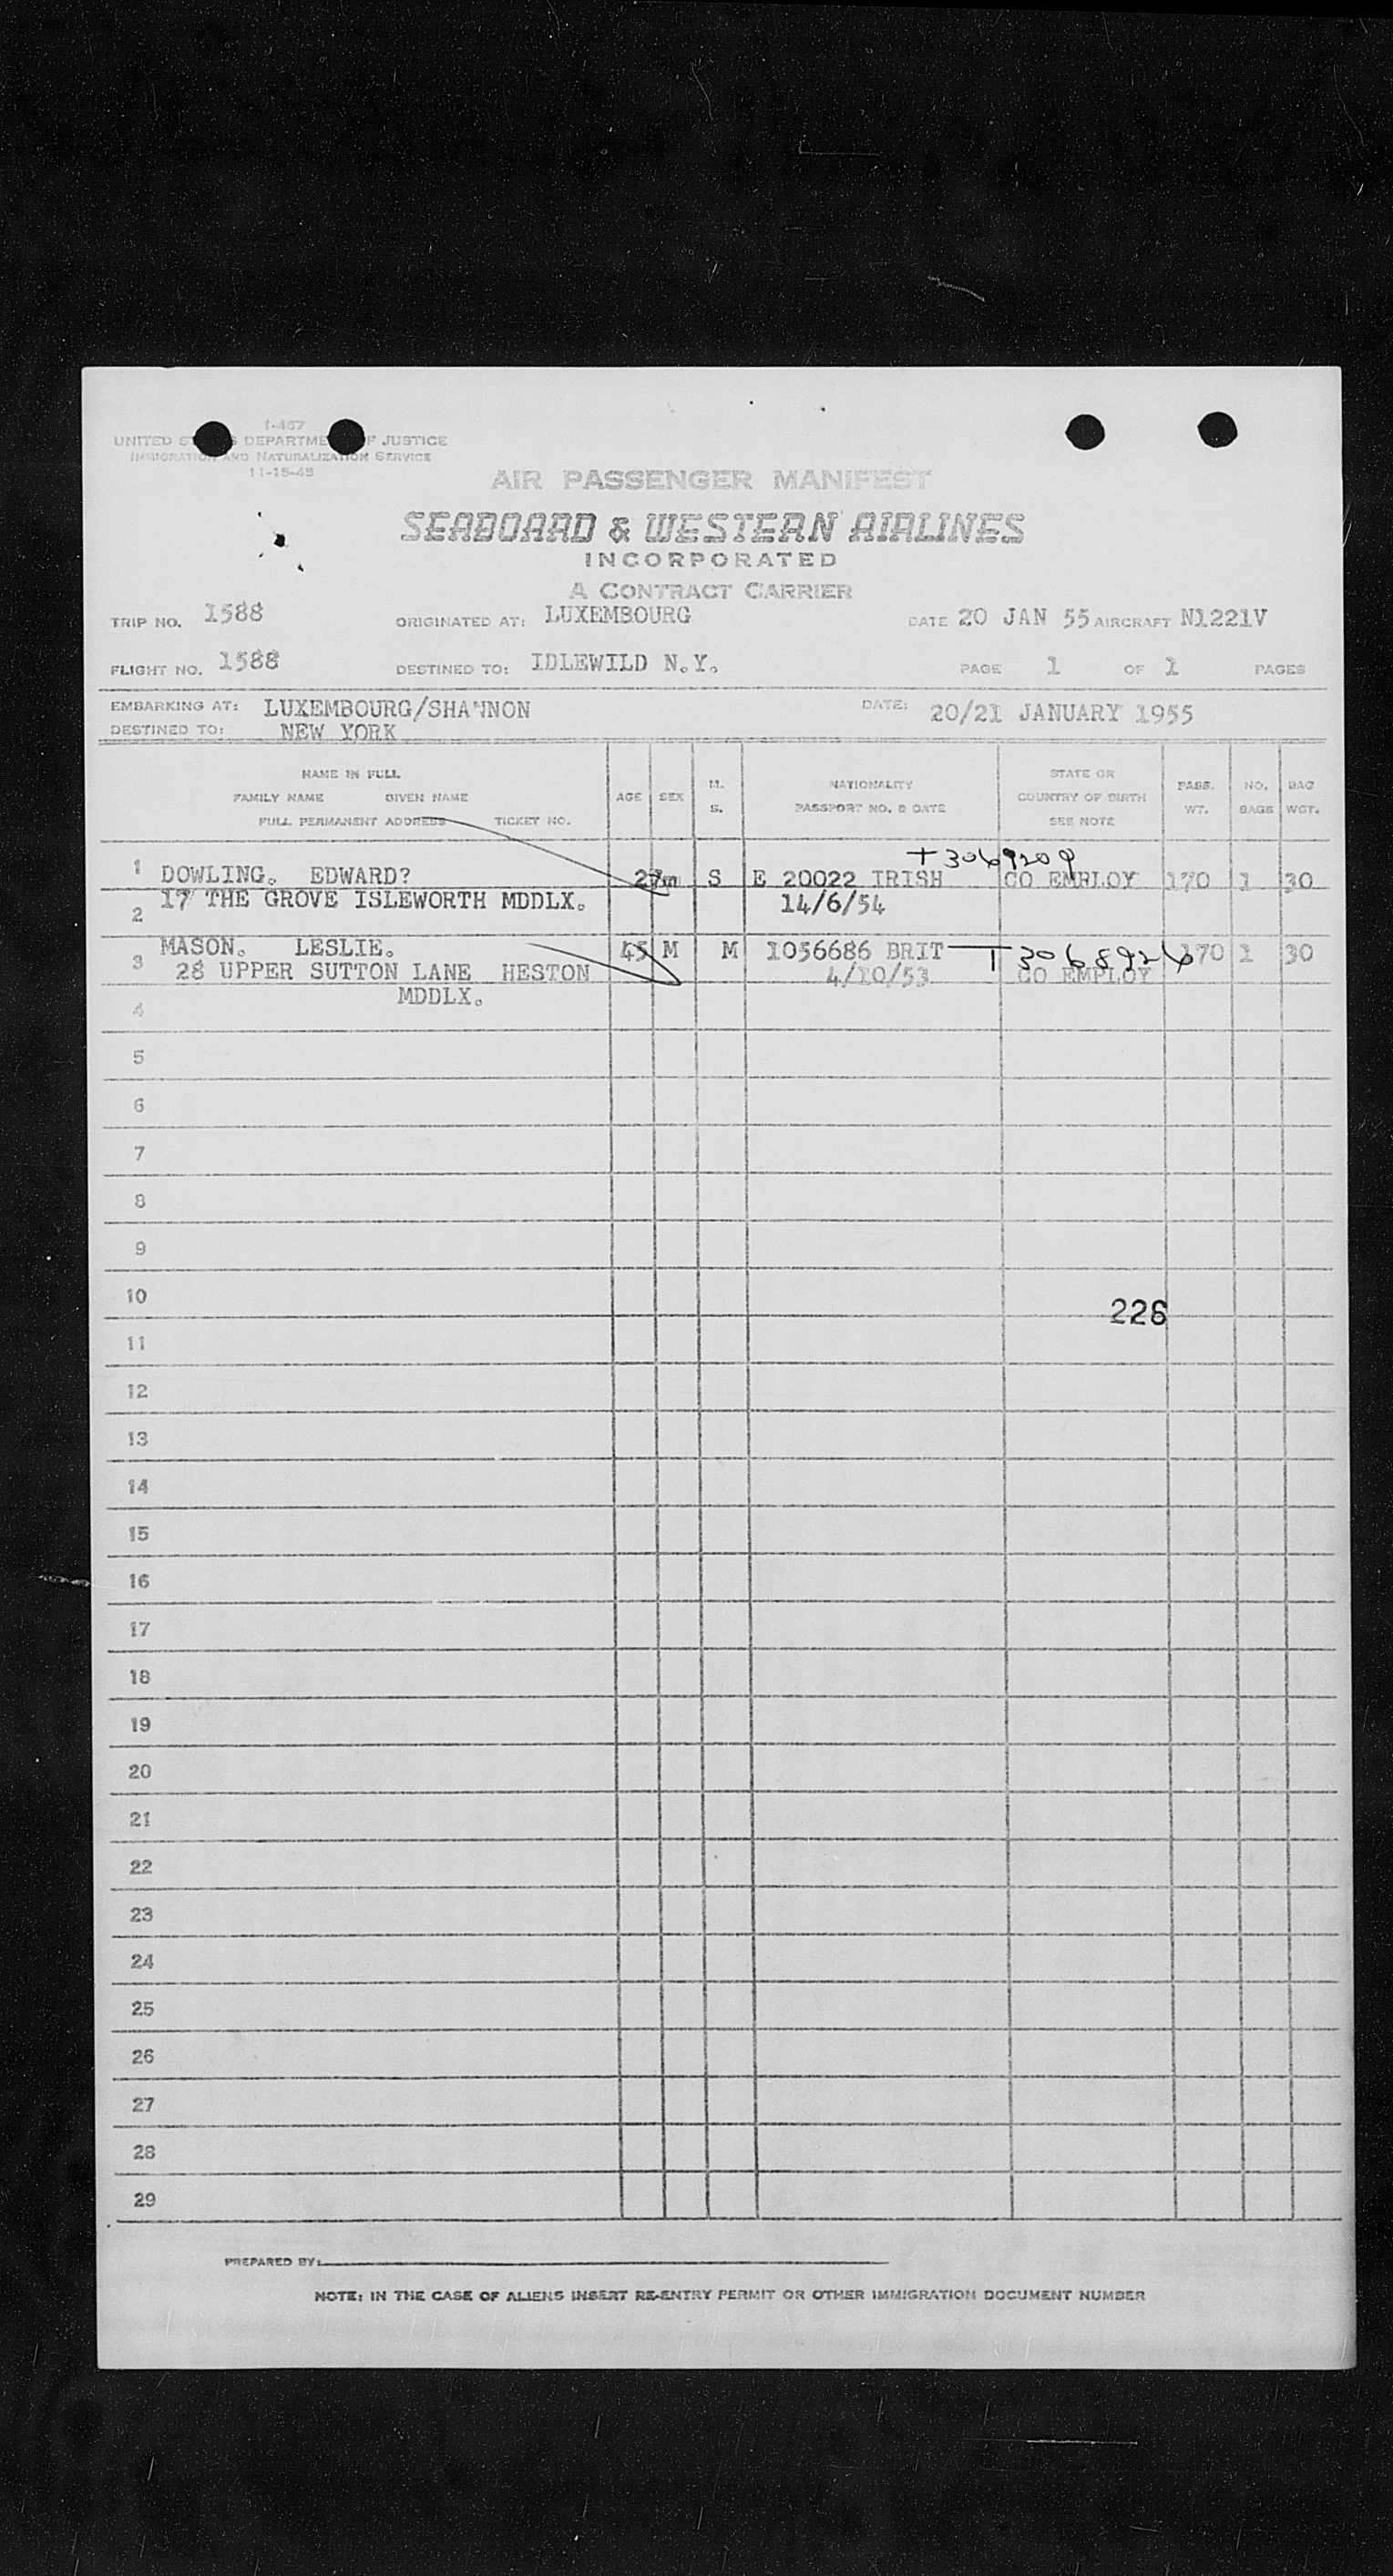 I-467
UNITED S S DEPARTME F JUSTICE
IMMIGRATION AND NATURALIZATION SERVICE
11-15-45
AIR PASSENGER MANIFEST
SEABOARD & WESTERN AIRLINES
INCORPORATED
A CONTRACT CARRIER
TRIP NO. 1588 ORIGINATED AT: LUXEMBOURG DATE 20 JAN 55 AIRCRAFT N1221V
FLIGHT NO. 1588 DESTINED TO: IDLEWILD N.Y. PAGE 1 OF 1 PAGES
EMBARKING AT: LUXEMBOURG/SHANNON DATE: 20/21 JANUARY 1955
DESTINED TO: NEW YORK
NAME IN FULL STATE OR
FAMILY NAME GIVEN NAME AGE SEX M. S. NATIONALITY COUNTRY OF BIRTH PASS. WT. NO. BAGS BAG WGT.
FULL PERMANENT ADDRESS TICKET NO. PASSPORT NO. & DATE SEE NOTE
T3069209
1 DOWLING. EDWARD? 27 m S E 20022 IRISH CO EMPLOY 170 1 30
2 17 THE GROVE ISLEWORTH MDDLX. 14/6/54
3 MASON. LESLIE. 45 M M 1056686 BRIT T3068926 170 1 30
28 UPPER SUTTON LANE HESTON 4/10/53 CO EMPLOY
4 MDDLX.
5
6
7
8
9
10 226
11
12
13
14
15
16
17
18
19
20
21
22
23
24
25
26
27
28
29
PREPARED BY:
NOTE: IN THE CASE OF ALIENS INSERT RE-ENTRY PERMIT OR OTHER IMMIGRATION DOCUMENT NUMBER